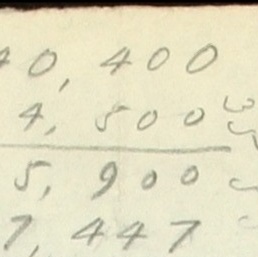 40,400
4,500
5,900
7,447